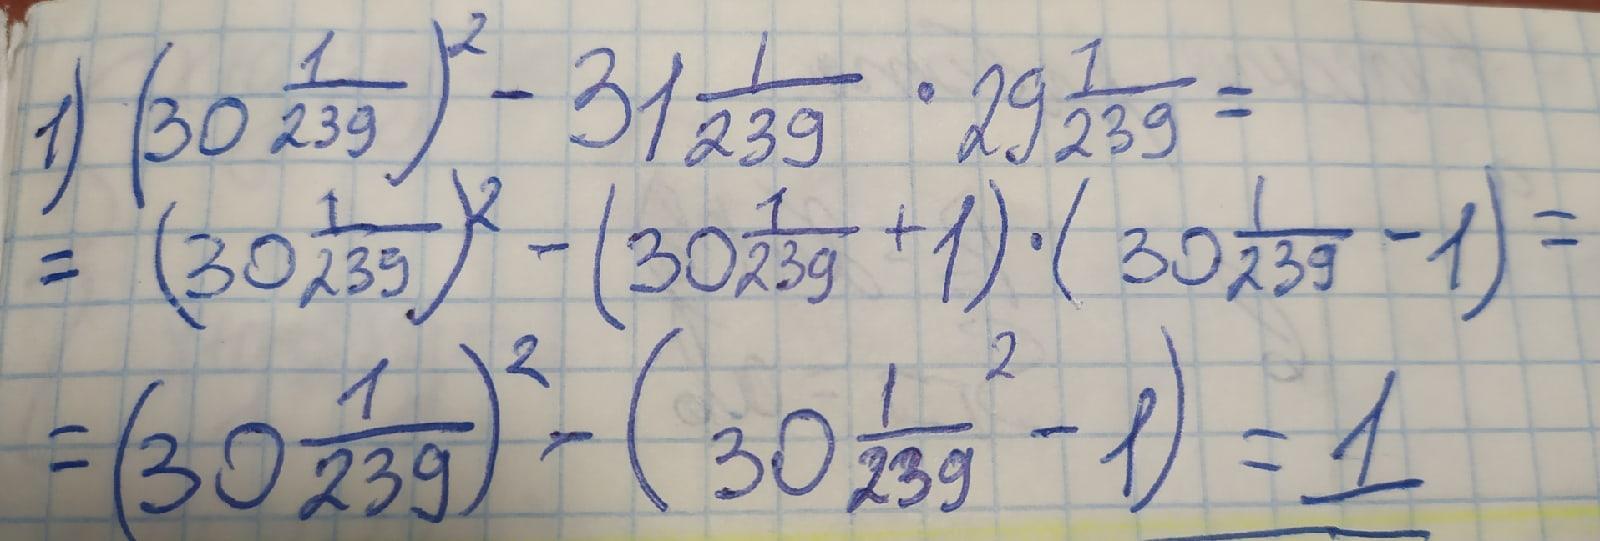 1) (30 1/239)² - 31 1/239 · 29 1/239 =
= (30 1/239)² - (30 1/239 + 1) · (30 1/239 - 1) =
= (30 1/239)² - (30 1/239² - 1) = 1